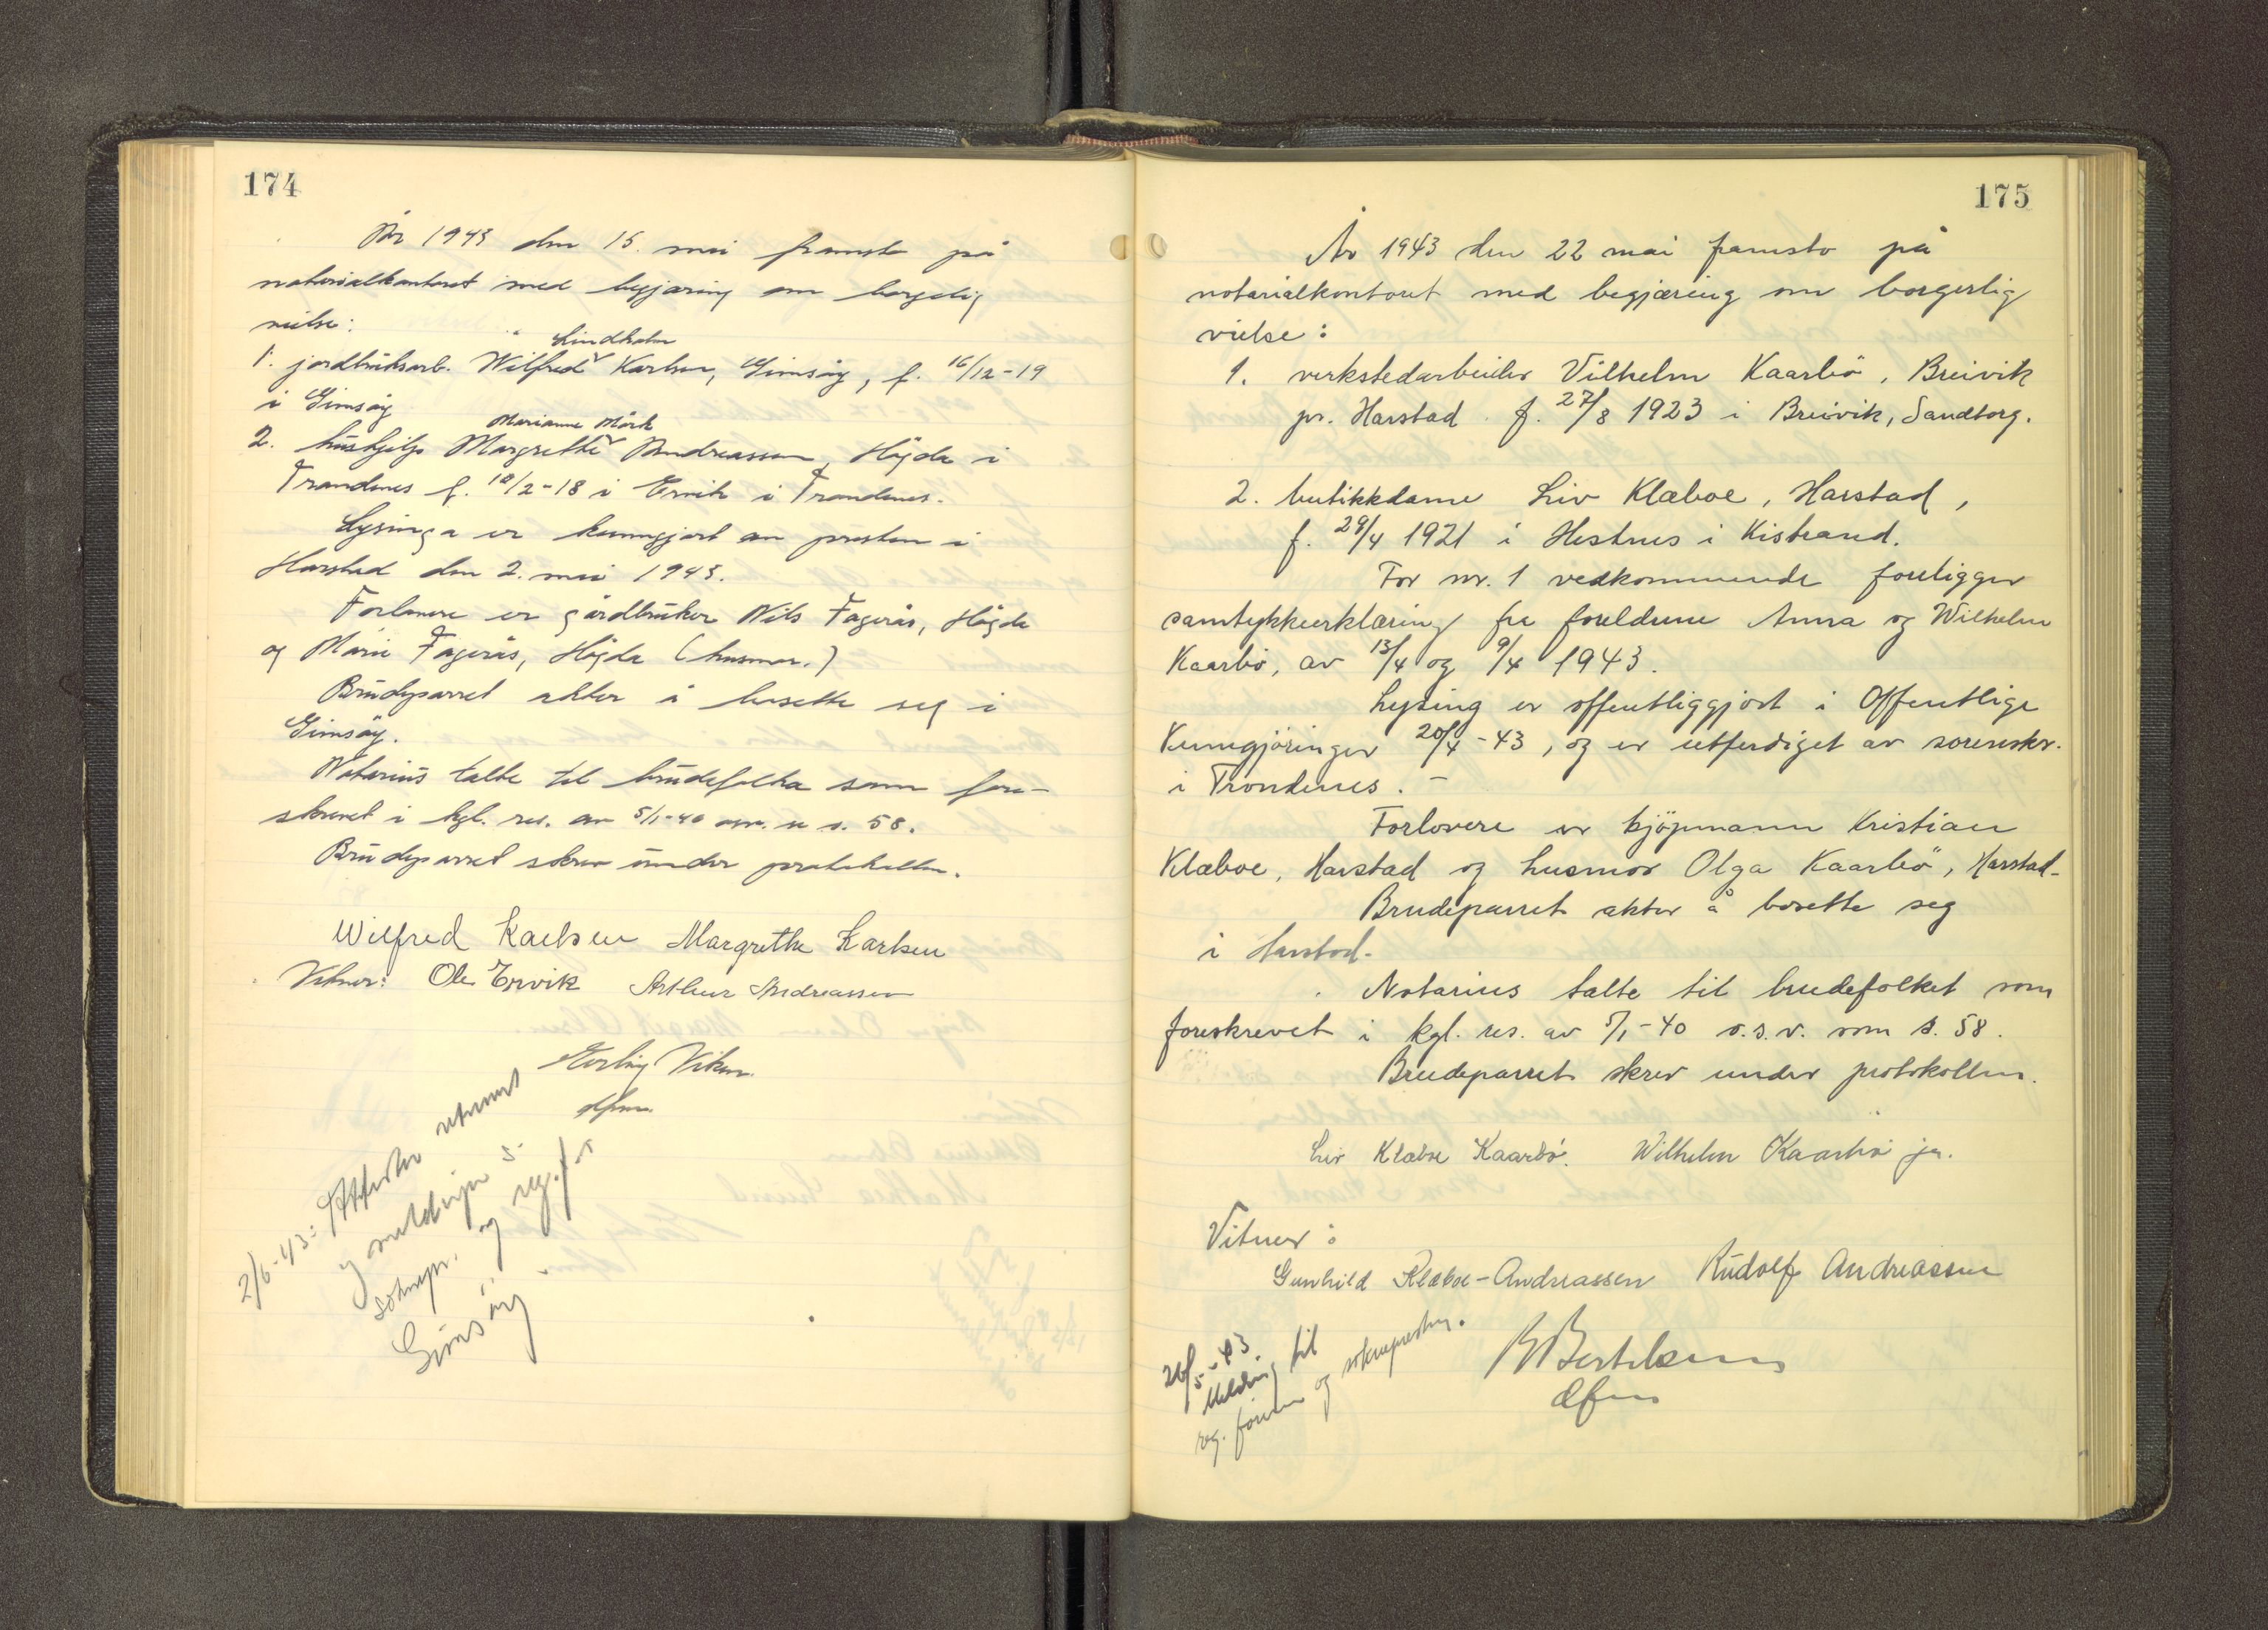 174
År 1943 den 15. mai framsto på
notarialkontoret med begjæring om borgerlig
vielse:
Lindholm
1. jordbruksarb. Wilfred ˅ Karlsen, Gimsöy, f. 16/12-19
i Gimsöy
Marianne Mörk
2. hushjelp Margrethe ˅ Andreassen, Högda i
Trondenes f. 18/2-18 i Ervik i Trondenes.
Lysinga er kunngjort av presten i
Harstad den 2. mai 1943.
Forlovere er gårdbruker Nils Fagerås, Högda
og Marie Fagerås, Högda (husmor.)
Brudeparret akter å bosette seg i
Gimsöy.
Notarius talte til brudefolka som fore-
skrevet i kgl. res. av 5/1-40 osv. se s. 58.
Brudeparret skrev under protokollen.
Wilfred Karlsen Margrethe Karlsen
Vitner: Ole Ervik Arthur Andreassen
Erling Viken
dfm.
2/6-43: Attester utstedt
og meldinger s.
soknepr. og reg.f. i
Gimsöy.
175
År 1943 den 22 mai framsto på
notarialkontoret med begjæring om borgerlig
vielse:
1. verkstedarbeider Vilhelm Kaarbö, Breivik
pr. Harstad f. 27/8 1923 i Breivik, Sandtorg.
2. butikkdame Liv Klæboe, Harstad,
f. 29/4 1921 i Hestnes i Kistrand.
For nr. 1 vedkommende foreligger
samtykkeerklæring fra foreldrene Anna og Wilhelm
Kaarbö, av 13/4 og 9/4 1943.
Lysing er offentliggjort i Offentlige
Kunngjöringer 20/4-43, og er utferdiget av sorenskr.
i Trondenes. -
Forlovere er kjöpmann Kristian
Klæboe, Harstad og husmor Olga Kaarbö, Harstad-
Brudeparret akter å bosette seg
i Harstad-
Notarius talte til brudefolket som
foreskrevet i kgl. res. av 5/1-40 o.s.v. som s. 58.
Brudeparret skrev under protokollen.
Liv Klæboe Kaarbö. Wilhelm Kaarbö jr.
Vitner:
Gunhild Klæboe-Andreassen Rudolf Andreassen
B Bertelsen
dfm
26/5-43
Melding til
reg. föreren og soknepresten.